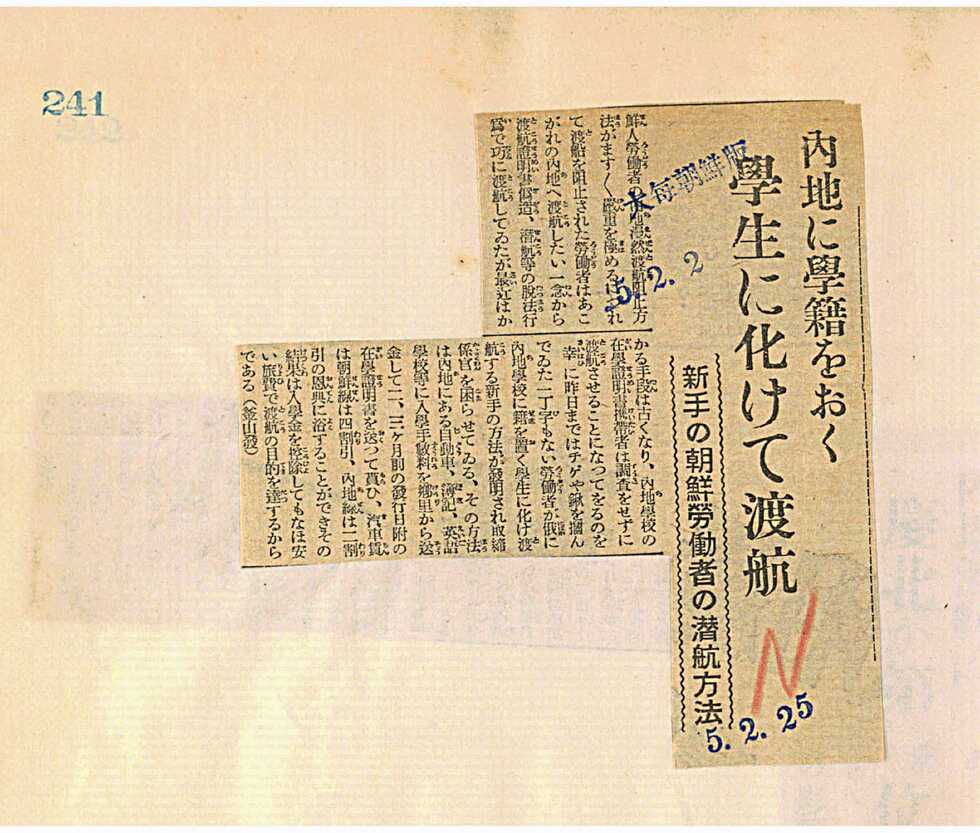 241
內地に學籍をおく
學生に化けて渡航
新手の朝鮮勞働者の潜航方法
大每朝鮮版
5.2.2
5.2.25
N
鮮人勞働者の內地漫然渡航阻止方
法がます〱嚴重を極めるにつれ
て渡船を阻止された勞働者はあこ
がれの內地へ渡航したい一念から
渡航證明書僞造、潜航等の脫法行
爲で巧に渡航してゐたが最近はか
かる手段は古くなり、內地學校の
在學證明書携帶者は調査をせずに
渡航させることになつてをるのを
幸に昨日まではチゲや鍬を擔ん
でゐた一丁字もない勞働者が俄に
內地學校に籍を置く學生に化け渡
航する新手の方法が發明され取締
係官を困らせてゐる、その方法
は內地にある自動車、簿記、英語
學校等に入學手數料を鄕里から送
金して二、三ケ月前の發行日附の
在學證明書を送つて貰ひ、汽車賃
は朝鮮線は四割引、內地線は二割
引の恩典に浴することができその
結果は入學金を控除してもなほ安
い旅費で渡航の目的を達するから
である(釜山發)